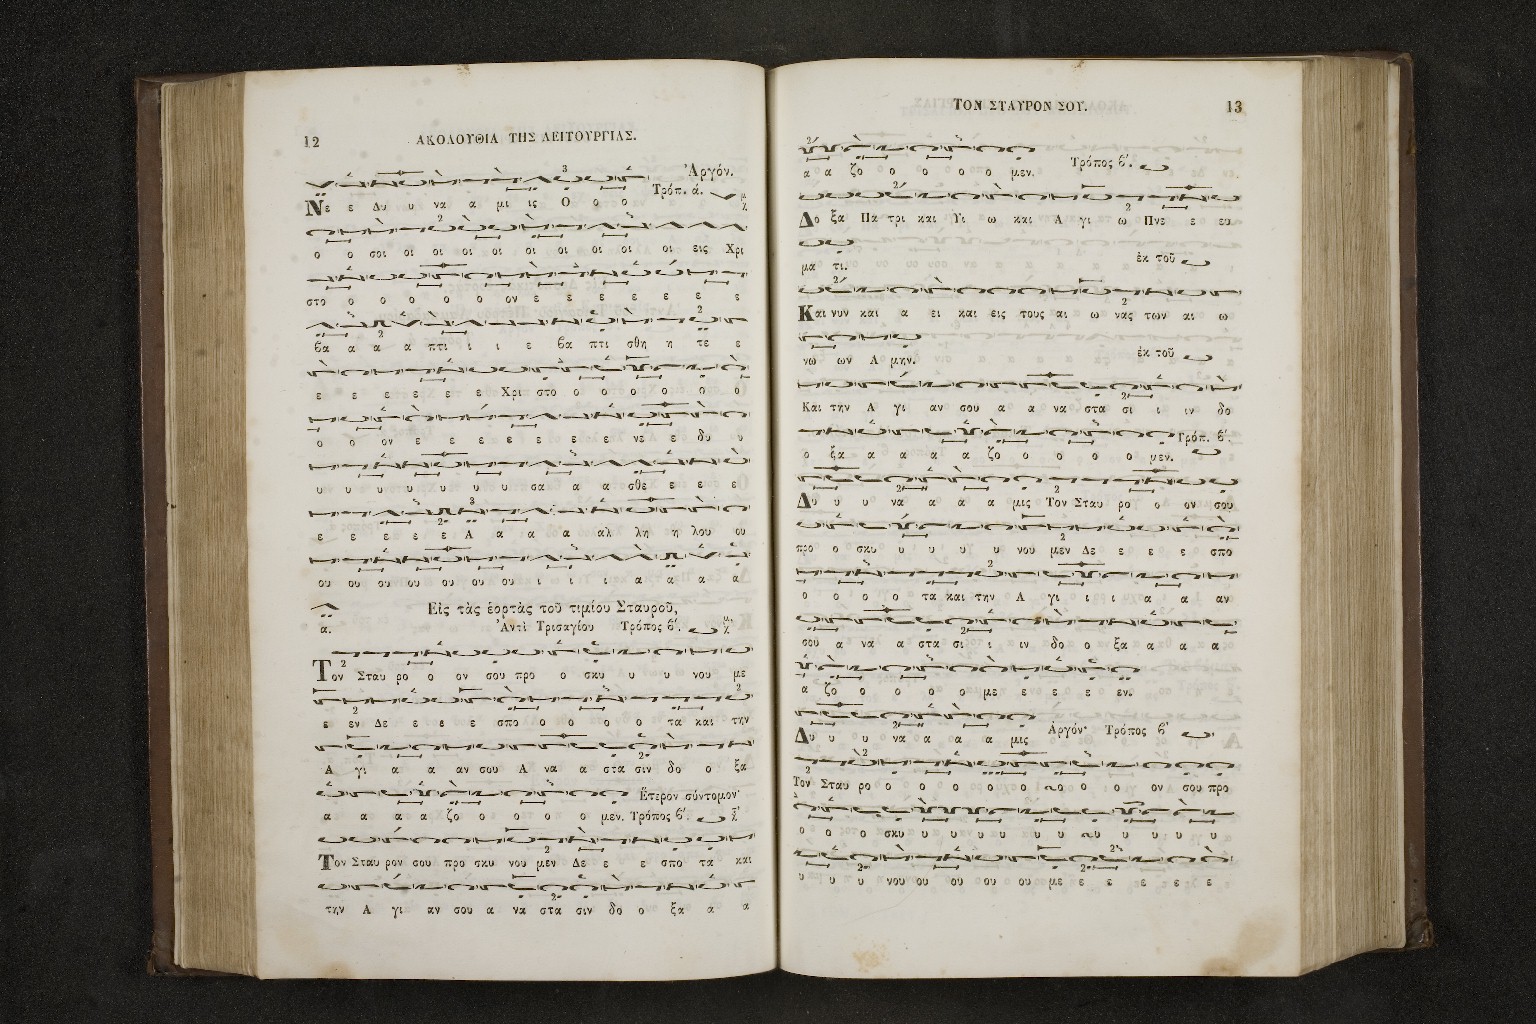 12
ΑΚΟΛΟΥΘΙΑ ΤΗΣ ΛΕΙΤΟΥΡΓΙΑΣ.
Ἀργόν.
Τρόπ. ά.
Νε ε δυ υ να α μι ις Ο ο ο
ο ο σοι οι οι οι οι οι οι οι οι οι εις Χρι
στο ο ο ο ο ο ον ε ε ε ε ε ε ε
βα α α α πτι ι ι ε βα πτι σθη η τε ε
ε ε ε ε ε ε Χρι στο ο ο ο ο ο ο
ο ο ον ε ε ε ε ε ε ε νε ε δυ υ
υ υ υ υ υ υ υ σα α α σθε ε ε ε
ε ε ε ε ε Α α α α αλ λη η λου ου
ου ου ου ου ου ου ου ι ι ι α α α α
Εἰς τὰς ἑορτὰς τοῦ τιμίου Σταυροῦ,
ά.
Ἀντὶ Τρισαγίου Τρόπος β΄.
Τον Σταυ ρο ο ον σου προ ο σκυ υ υ νου με
ε εν Δε ε ε ε σπο ο ο ο ο τα και την
Α γι α α αν σου Α να α στα σιν δο ο ξα
Ἕτερον σύντομον·
α α α α ζο ο ο ο ο μεν. Τρόπος β΄.
Τον Σταυ ρον σου προ σκυ νου μεν Δε ε ε σπο τα και
την Α γι αν σου α να στα σιν δο ο ξα α α
ΤΟΝ ΣΤΑΥΡΟΝ ΣΟΥ.
13
α α ζο ο ο ο ο μεν. Τρόπος β΄.
Δο ξα Πα τρι και Υι ω και Α γι ω Πνε ε ευ
μα τι. ἐκ τοῦ
Και νυν και α ει και εις τους αι ω νας των αι ω
νω ων Α μην. ἐκ τοῦ
Και την Α γι αν σου α α να στα σι ι ιν δο
Τρόπ. β΄.
ο ξα α α α α ζο ο ο ο ο μεν.
Δυ υ υ να α α α μις Τον Σταυ ρο ο ον σου
προ ο σκυ υ υ υ υ νου μεν Δε ε ε ε σπο
ο ο ο ο τα και την Α γι ι ι α α αν
σου α να α στα σι ι ιν δο ο ξα α α α
α ζο ο ο ο ο με ε ε ε εν.
Δυ υ υ να α α α μις Ἀργόν· Τρόπος β΄
Τον Σταυ ρο ο ο ο ο ο ο ο ο ο ον σου προ
ο ο ο σκυ υ υ υ υ υ υ υ υ υ υ υ
υ υ υ νου ου ου ου ου με ε ε ε ε ε